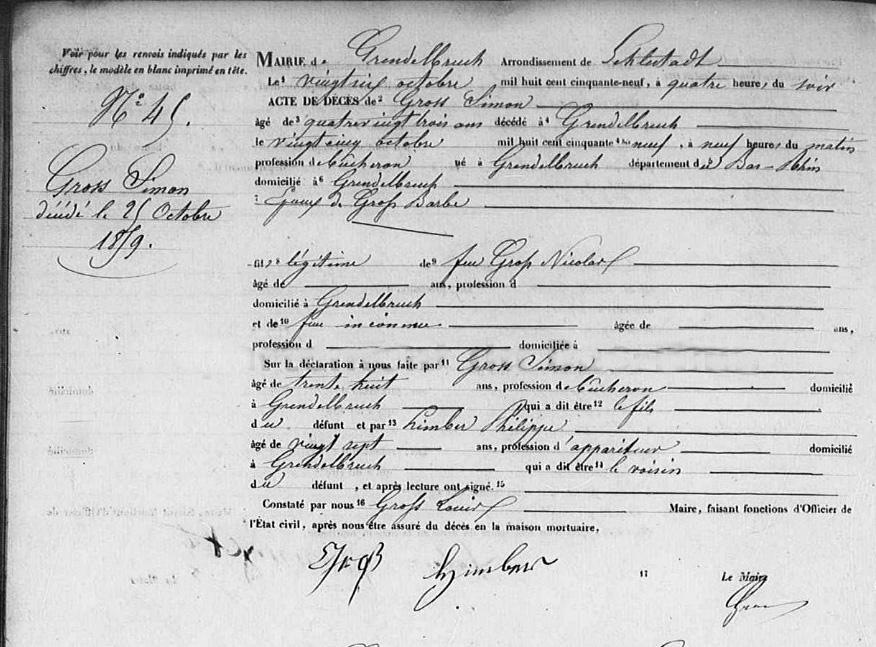 Voir pour les renvois indiqués par les
chiffres, le modèle en blanc imprimé en tête.
N° 45.
Gross Simon
décédé le 25 Octobre
1859.
MAIRIE de Grendelbruch Arrondissement de Schlestadt
Le 1 vingt six octobre mil huit cent cinquante-neuf, à quatre heures du soir
ACTE DE DÉCÈS de 2 Gross Simon
âgé de 3 quatrevingt trois ans décédé à 4 Grendelbruch
le vingt cinq octobre mil huit cent cinquante neuf, à neuf heures du matin
profession de bucheron né à Grendelbruch département du Bas-Rhin
domicilié à 6 Grendelbruch
7 de Groß Barbe
fils 8 légitime de 9 feu Groß Nicolas
âgé de ans, profession d
domicilié à Grendelbruch
et de 10 feue inconnue âgée de ans,
profession d domiciliée à
Sur la déclaration à nous faite par 11 Gross Simon
âgé de trente huit ans, profession de bucheron domicilié
à Grendelbruch qui a dit être 12 le fils
du défunt et par 13 Himber Philippe
âgé de vingt sept ans, profession d'appariteur domicilié
à Grendelbruch qui a dit être 14 le voisin
du défunt, et après lecture ont signé. 15
Constaté par nous 16 Groß Louis Maire, faisant fonctions d'Officier de
l'État civil, après nous être assuré du décès en la maison mortuaire,
Groß Himber 17 Le Maire